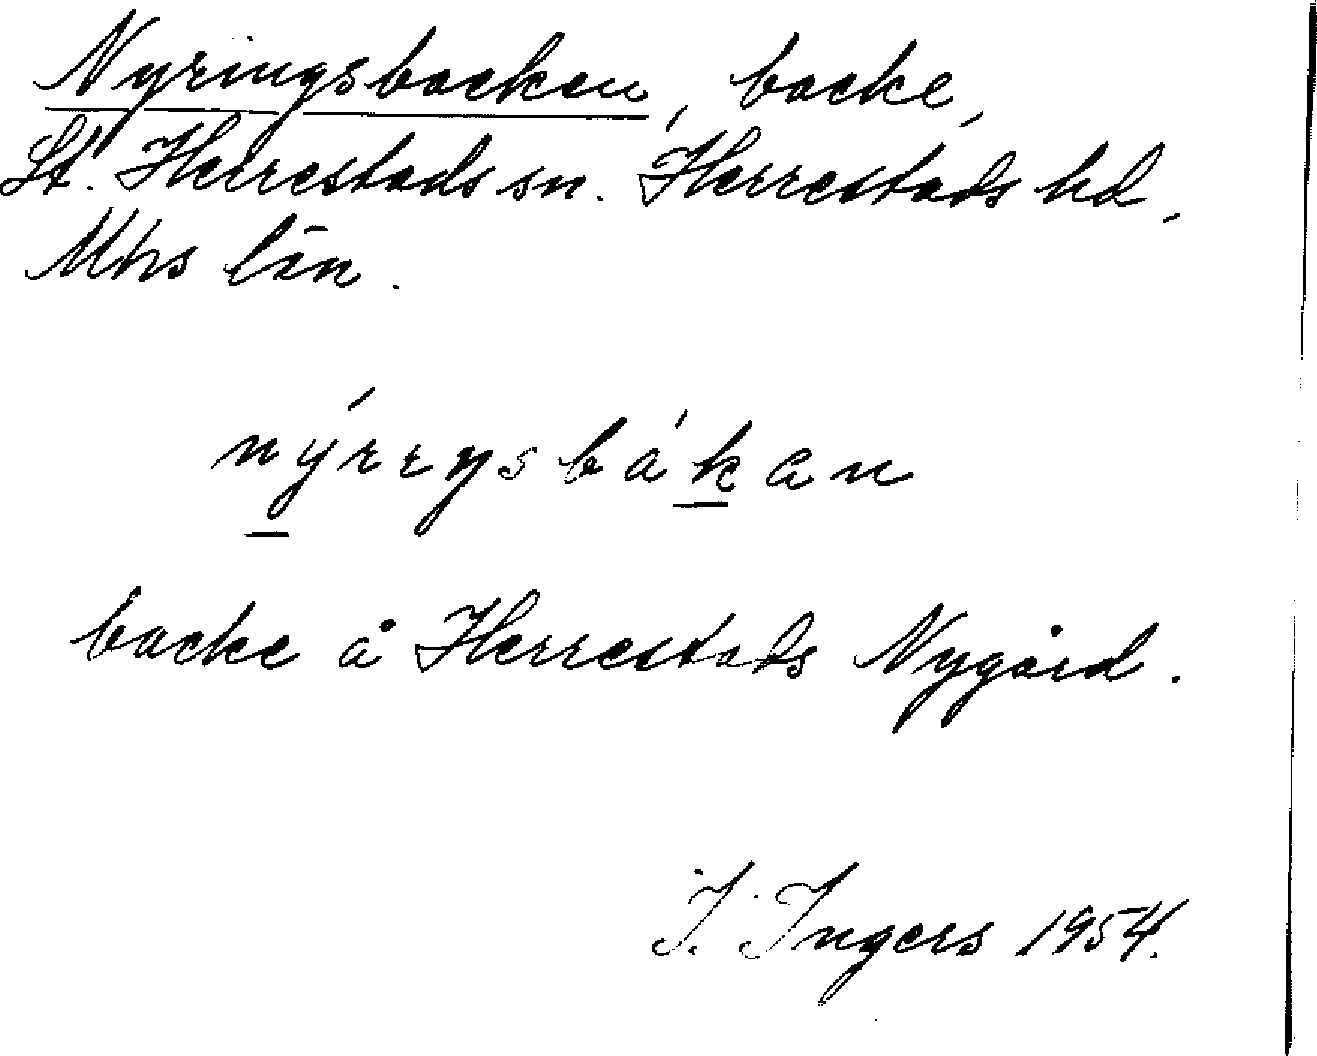 Nyringsbacken, backe,
St. Herrestads sn. Herrestads hd,
Mhs län.
nýrıŋsbákan
backe å Herrestads Nygård.
I. Ingers 1954.